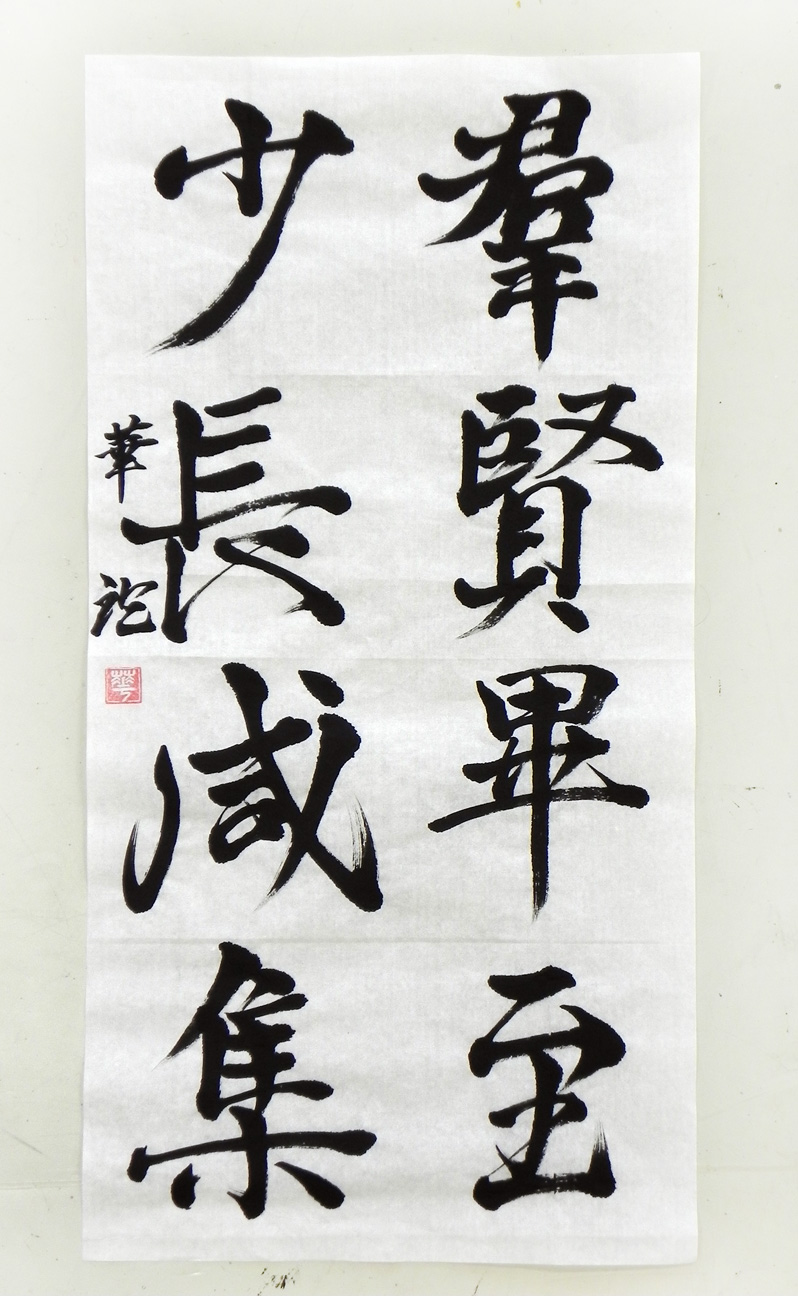 羣賢畢至
少長咸集
華
華